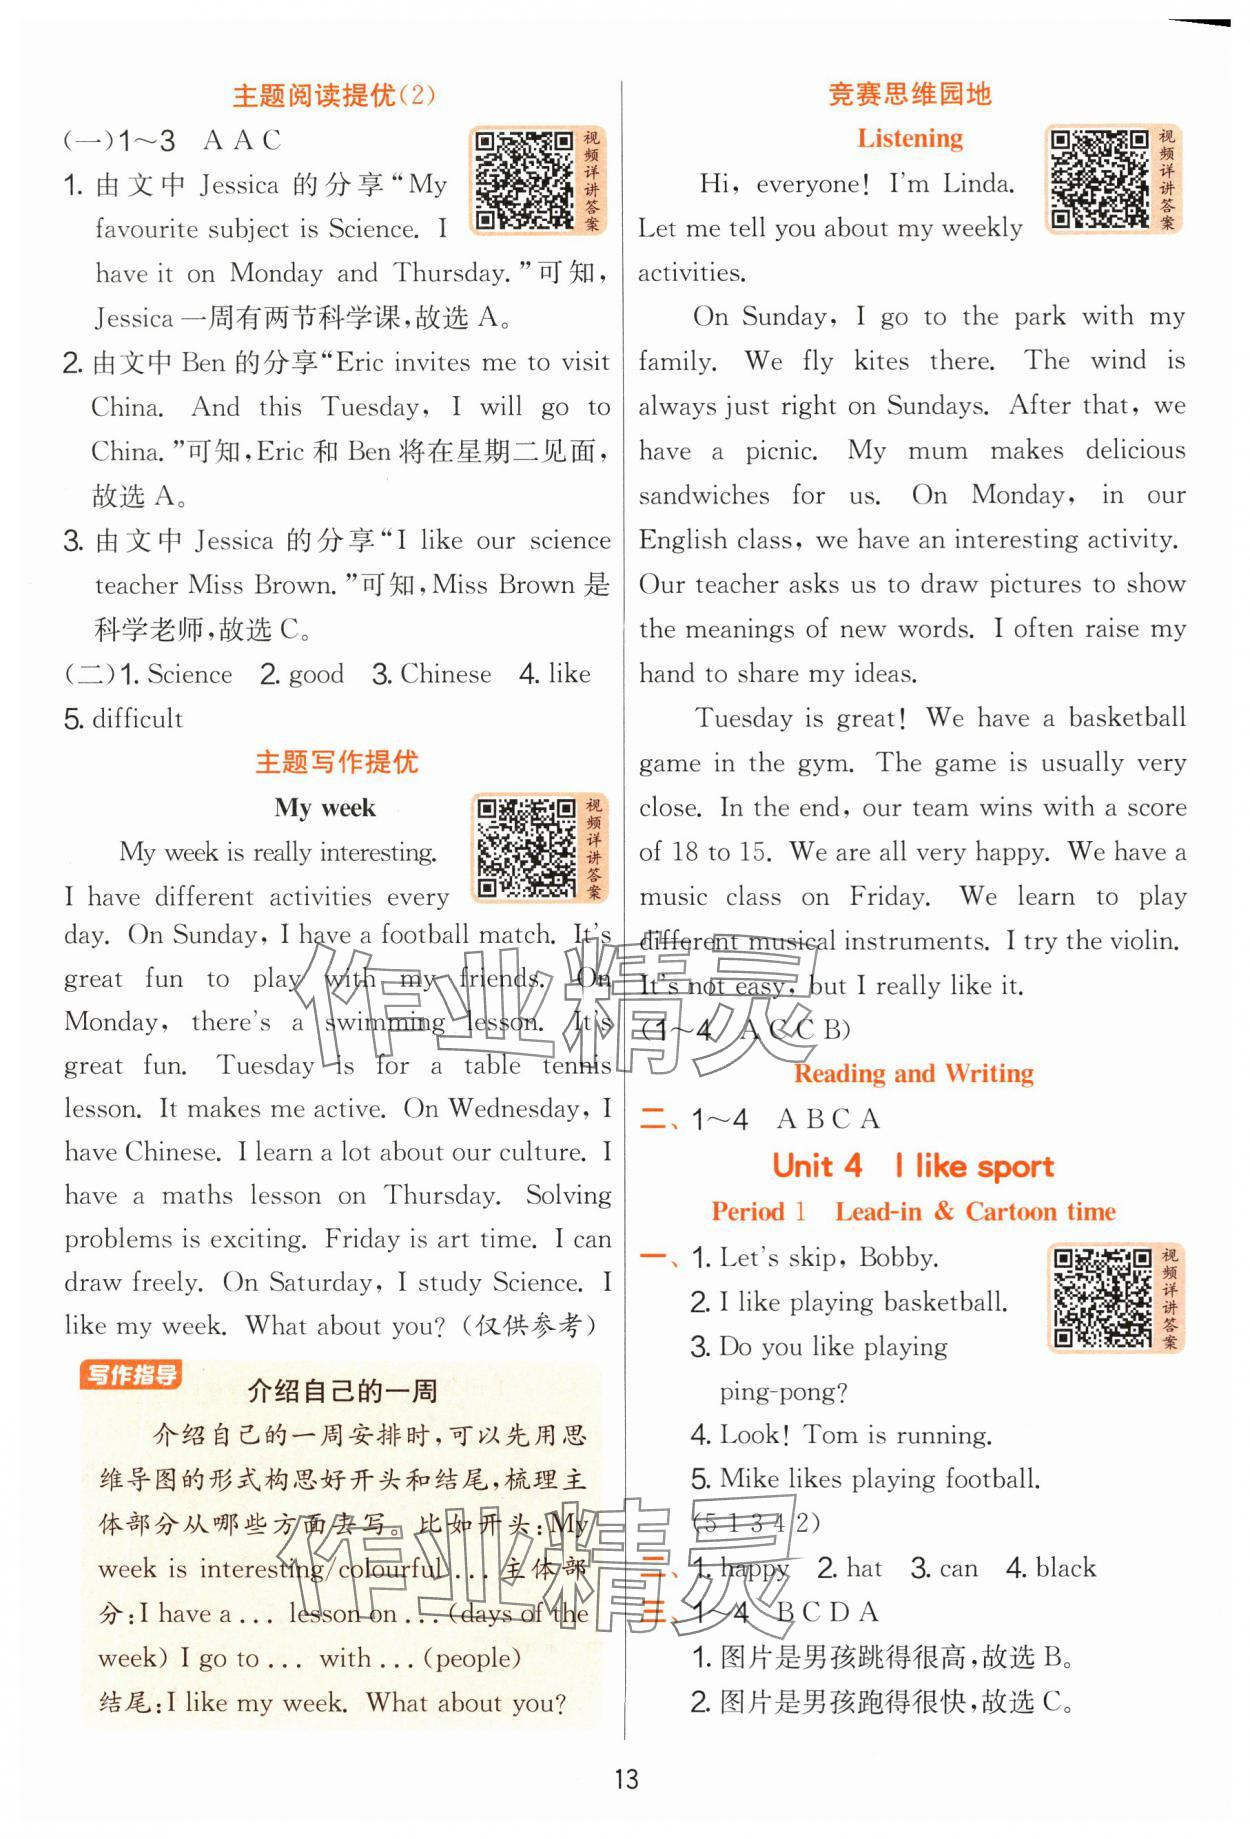 主题阅读提优(2)
(一)1～3 A A C
1. 由文中 Jessica 的分享“My
favourite subject is Science. I
have it on Monday and Thursday.”可知,
Jessica 一周有两节科学课,故选 A。
2. 由文中 Ben 的分享“Eric invites me to visit
China. And this Tuesday, I will go to
China.”可知,Eric 和 Ben 将在星期二见面,
故选 A。
3. 由文中 Jessica 的分享“I like our science
teacher Miss Brown.”可知,Miss Brown 是
科学老师,故选 C。
(二)1. Science 2. good 3. Chinese 4. like
5. difficult
视频详讲答案
主题写作提优
My week
My week is really interesting.
I have different activities every
day. On Sunday, I have a football match. It's
great fun to play with my friends. On
Monday, there's a swimming lesson. It's
great fun. Tuesday is for a table tennis
lesson. It makes me active. On Wednesday, I
have Chinese. I learn a lot about our culture. I
have a maths lesson on Thursday. Solving
problems is exciting. Friday is art time. I can
draw freely. On Saturday, I study Science. I
like my week. What about you? (仅供参考)
视频详讲答案
写作指导
介绍自己的一周
介绍自己的一周安排时,可以先用思
维导图的形式构思好开头和结尾,梳理主
体部分从哪些方面去写。比如开头:My
week is interesting/colourful ... 主体部
分:I have a ... lesson on ... (days of the
week) I go to ... with ... (people)
结尾:I like my week. What about you?
竞赛思维园地
Listening
Hi, everyone! I'm Linda.
Let me tell you about my weekly
activities.
On Sunday, I go to the park with my
family. We fly kites there. The wind is
always just right on Sundays. After that, we
have a picnic. My mum makes delicious
sandwiches for us. On Monday, in our
English class, we have an interesting activity.
Our teacher asks us to draw pictures to show
the meanings of new words. I often raise my
hand to share my ideas.
Tuesday is great! We have a basketball
game in the gym. The game is usually very
close. In the end, our team wins with a score
of 18 to 15. We are all very happy. We have a
music class on Friday. We learn to play
different musical instruments. I try the violin.
It's not easy, but I really like it.
(1～4 A C C B)
视频详讲答案
Reading and Writing
二、1～4 A B C A
Unit 4 I like sport
Period 1 Lead-in & Cartoon time
一、1. Let's skip, Bobby.
2. I like playing basketball.
3. Do you like playing
ping-pong?
4. Look! Tom is running.
5. Mike likes playing football.
(5 1 3 4 2)
视频详讲答案
二、1. happy 2. hat 3. can 4. black
三、1～4 B C D A
1. 图片是男孩跳得很高,故选 B。
2. 图片是男孩跑得很快,故选 C。
作业精灵
作业精灵
13